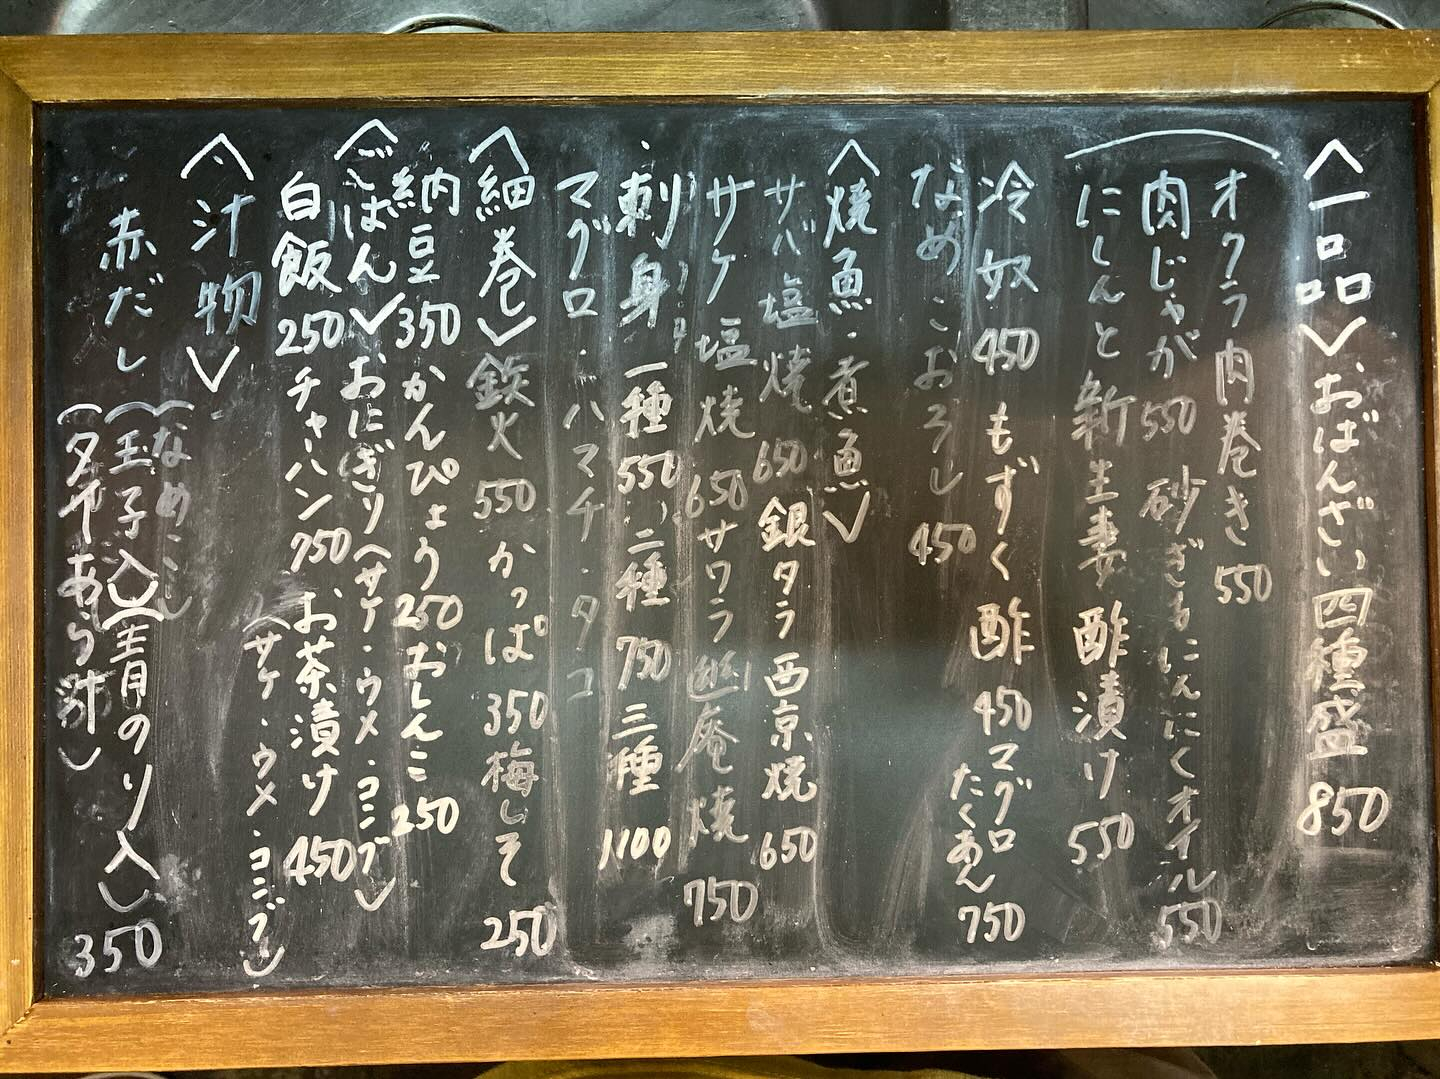 〈一品〉おばんざい四種盛 850
オクラ肉巻き 550
肉じゃが 550 砂ぎもにんにくオイル 550
にしんと新生姜 酢漬け 550
冷奴 450 もずく酢 450 マグロたくあん 750
なめこおろし 450
〈焼魚・煮魚〉
サバ塩焼 650 銀タラ西京焼 650
サケ塩焼 650 サワラ幽庵焼 750
刺身 一種 550 二種 750 三種 1100
マグロ・ハマチ・タコ
〈細巻〉鉄火 550 かっぱ 350 梅しそ 250
納豆 350 かんぴょう 250 おしんこ 250
〈ごはん〉おにぎり(サケ・ウメ・コンブ)
白飯 250 チャーハン 750 お茶漬け 450
(サケ・ウメ・コンブ)
〈汁物〉
赤だし(なめこ)
(玉子入)(青のり入) 350
(タヤあら汁)